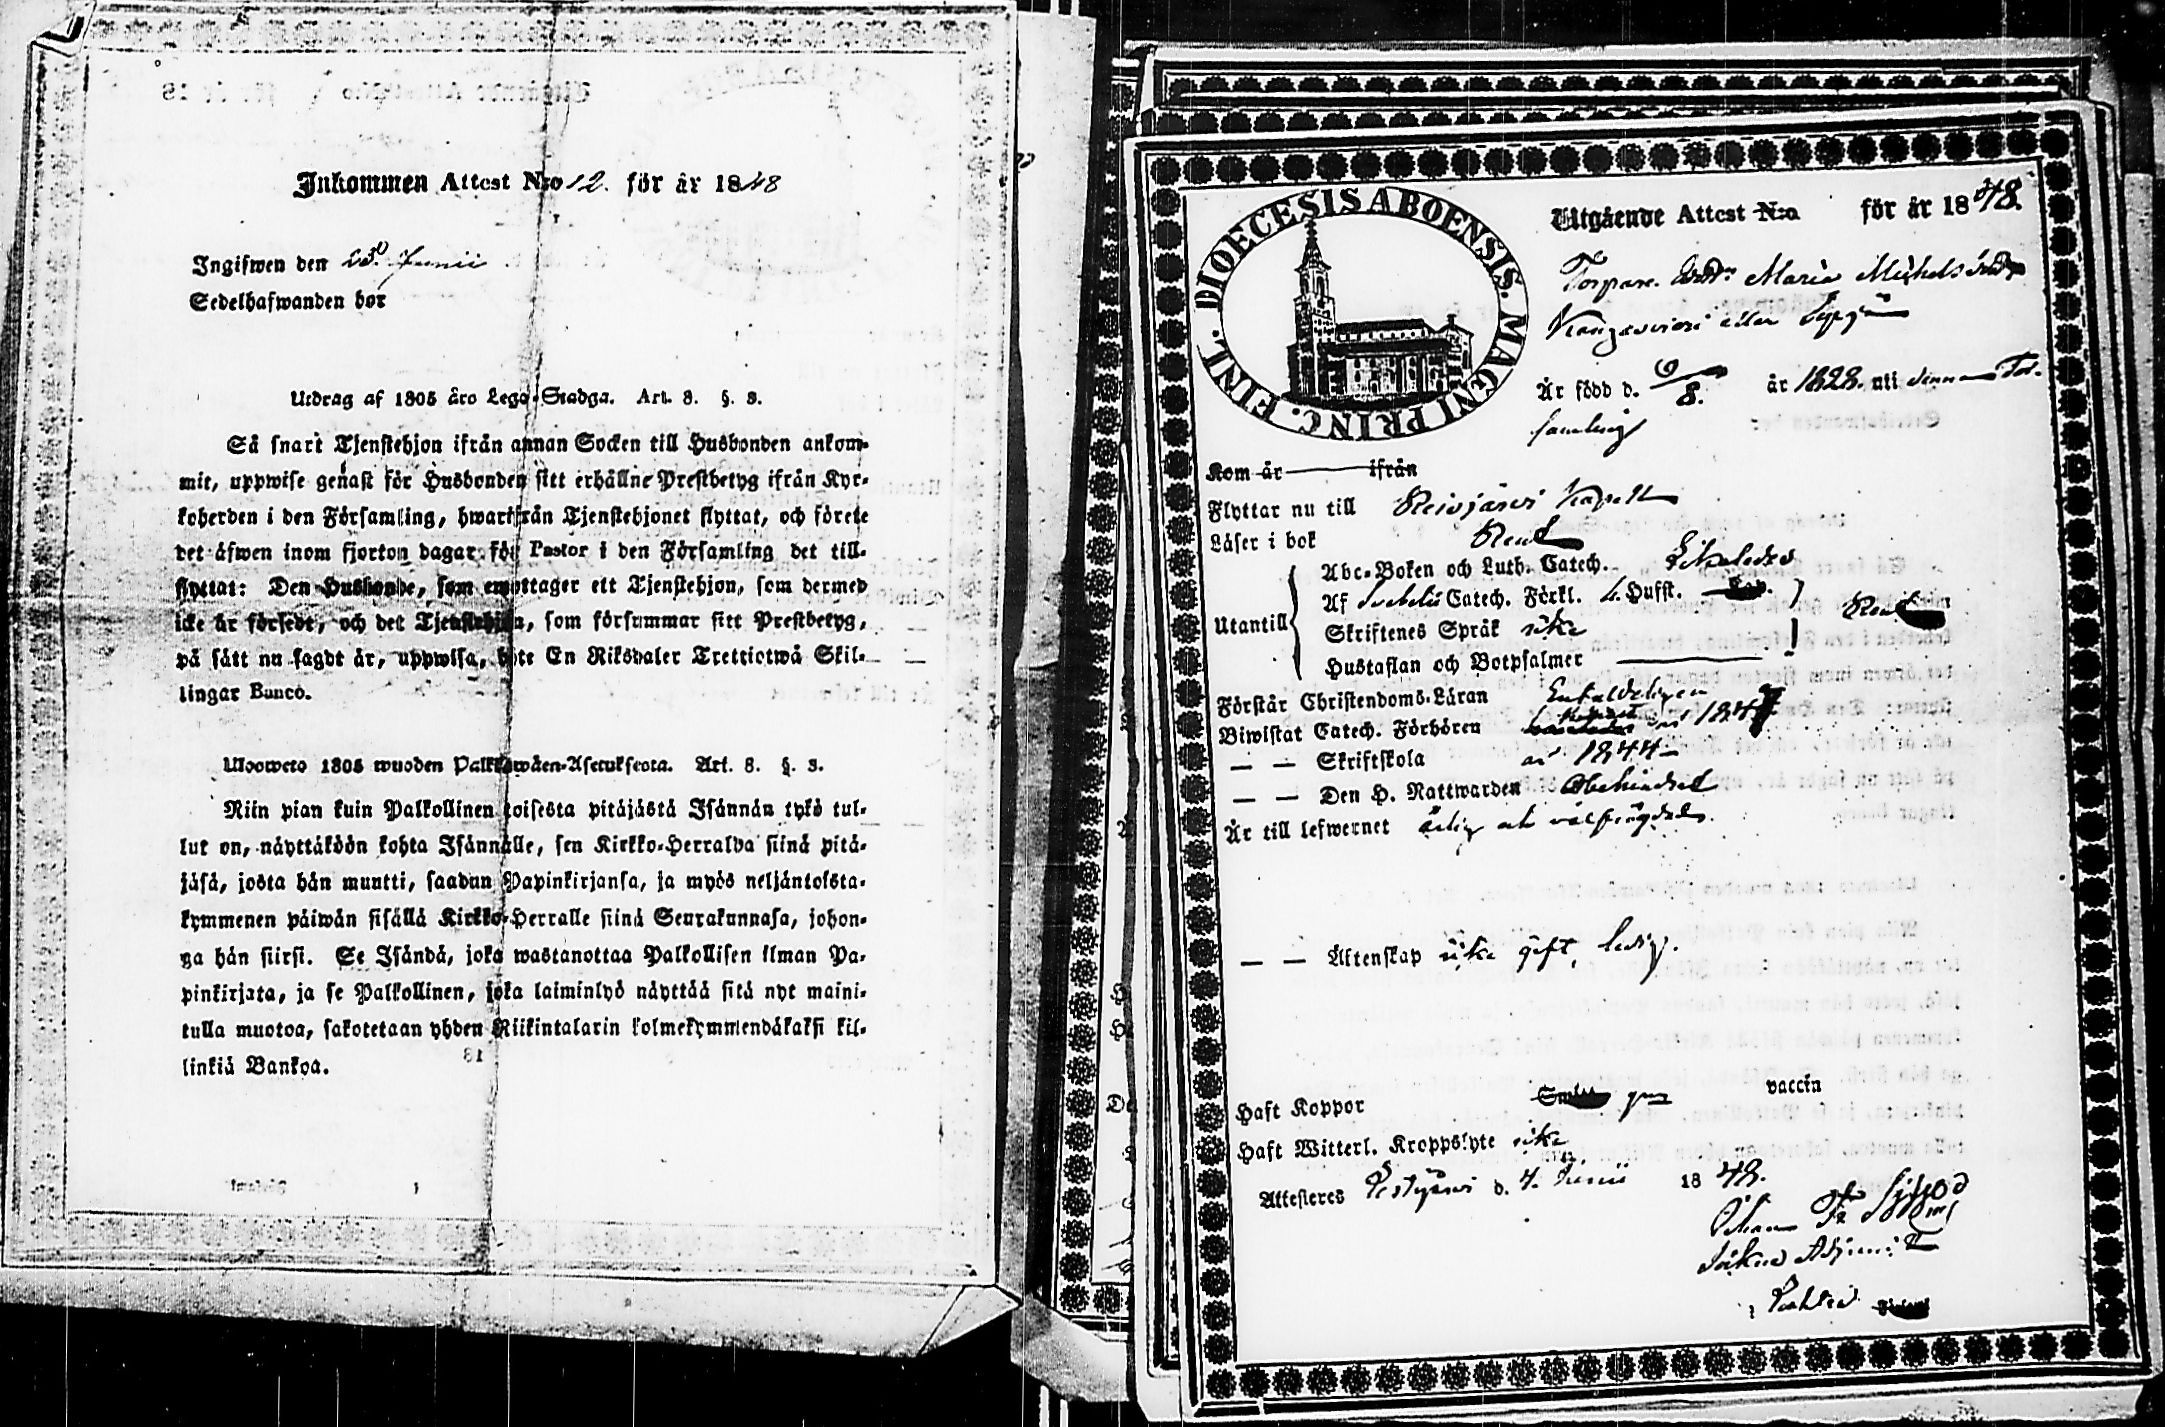 Inkommen Attest N:o 12. för år 1848
Ingifwen den 23. Junii
Sedelhafwanden bor
Utdrag af 1805 års Lego-Stadga. Art. 8. §. 3.
Så snart Tjenstehjon ifrån annan Socken till Husbonden ankom-
mit, uppwise genast för Husbonden sitt erhållne Prestbetyg ifrån Kyr-
koherden i den Församling, hwarifrån Tjenstehjonet flyttat, och förete
det äfwen inom fjorton dagar för Pastor i den Församling det till-
flyttat: Den Husbonde, som emottager ett Tjenstehjon, som dermed
icke är försedt, och det Tjenstehjon, som försummar sitt Prestbetyg,
på sätt nu sagdt är, uppwisa, böte En Riksdaler Trettiotwå Skil-
lingar Banco.
Uloweto 1805 wuoden Palkkawäen-Asetuksesta. Art. 8. §. 3.
Niin pian kuin Palkollinen toisesta pitäjästä Isännän tykö tul-
lut on, näyttäköön kohta Isännälle, sen Kirkko-Herralda siinä pitä-
jäsä, josta hän muutti, saadun Papinkirjansa, ja myös neljäntoista-
kymmenen päiwän sisällä Kirkko-Herralle siinä Seurakunnasa, johon-
ga hän siirsi. Se Isändä, joka wastanottaa Palkollisen ilman Pa-
pinkirjata, ja se Palkollinen, joka laiminlyö näyttää sitä nyt maini-
tulla muotoa, sakotetaan yhden Riikintalarin kolmekymmendäkaksi kil-
linkiä Bankoa.
DIOECESIS ABOENSIS. MAGNI PRINC. FINL.
Utgående Attest N:o för år 1848.
Torpare Maria Michelsdr
eller
Är född d. 9/8. år 1828. uti denna För-
samling
Kom år ifrån
Flyttar nu till Reisjärvi Kapell
Läser i bok Rent
Utantill
Abc-Boken och Luth. Catech.
Af Svebelii Catech. Förkl. 4. Hufst.
Rent
Skriftenes Språk icke
Hustaflan och Botpsalmer
Förstår Christendoms-Läran Enfaldeligen
Biwistat Catech. Förhören år 1847
— — Skriftskola år 1844
— — Den H. Nattwarden Obehindrad
Är till lefwernet ärlig och välfrägdad.
— — Äktenskap icke gift, ledig.
Haft Koppor vaccin
Haft Witterl. Kroppslyte icke
Attesteres Pestijärvi d. 4. Junii 1848.
Johan
Adjunct